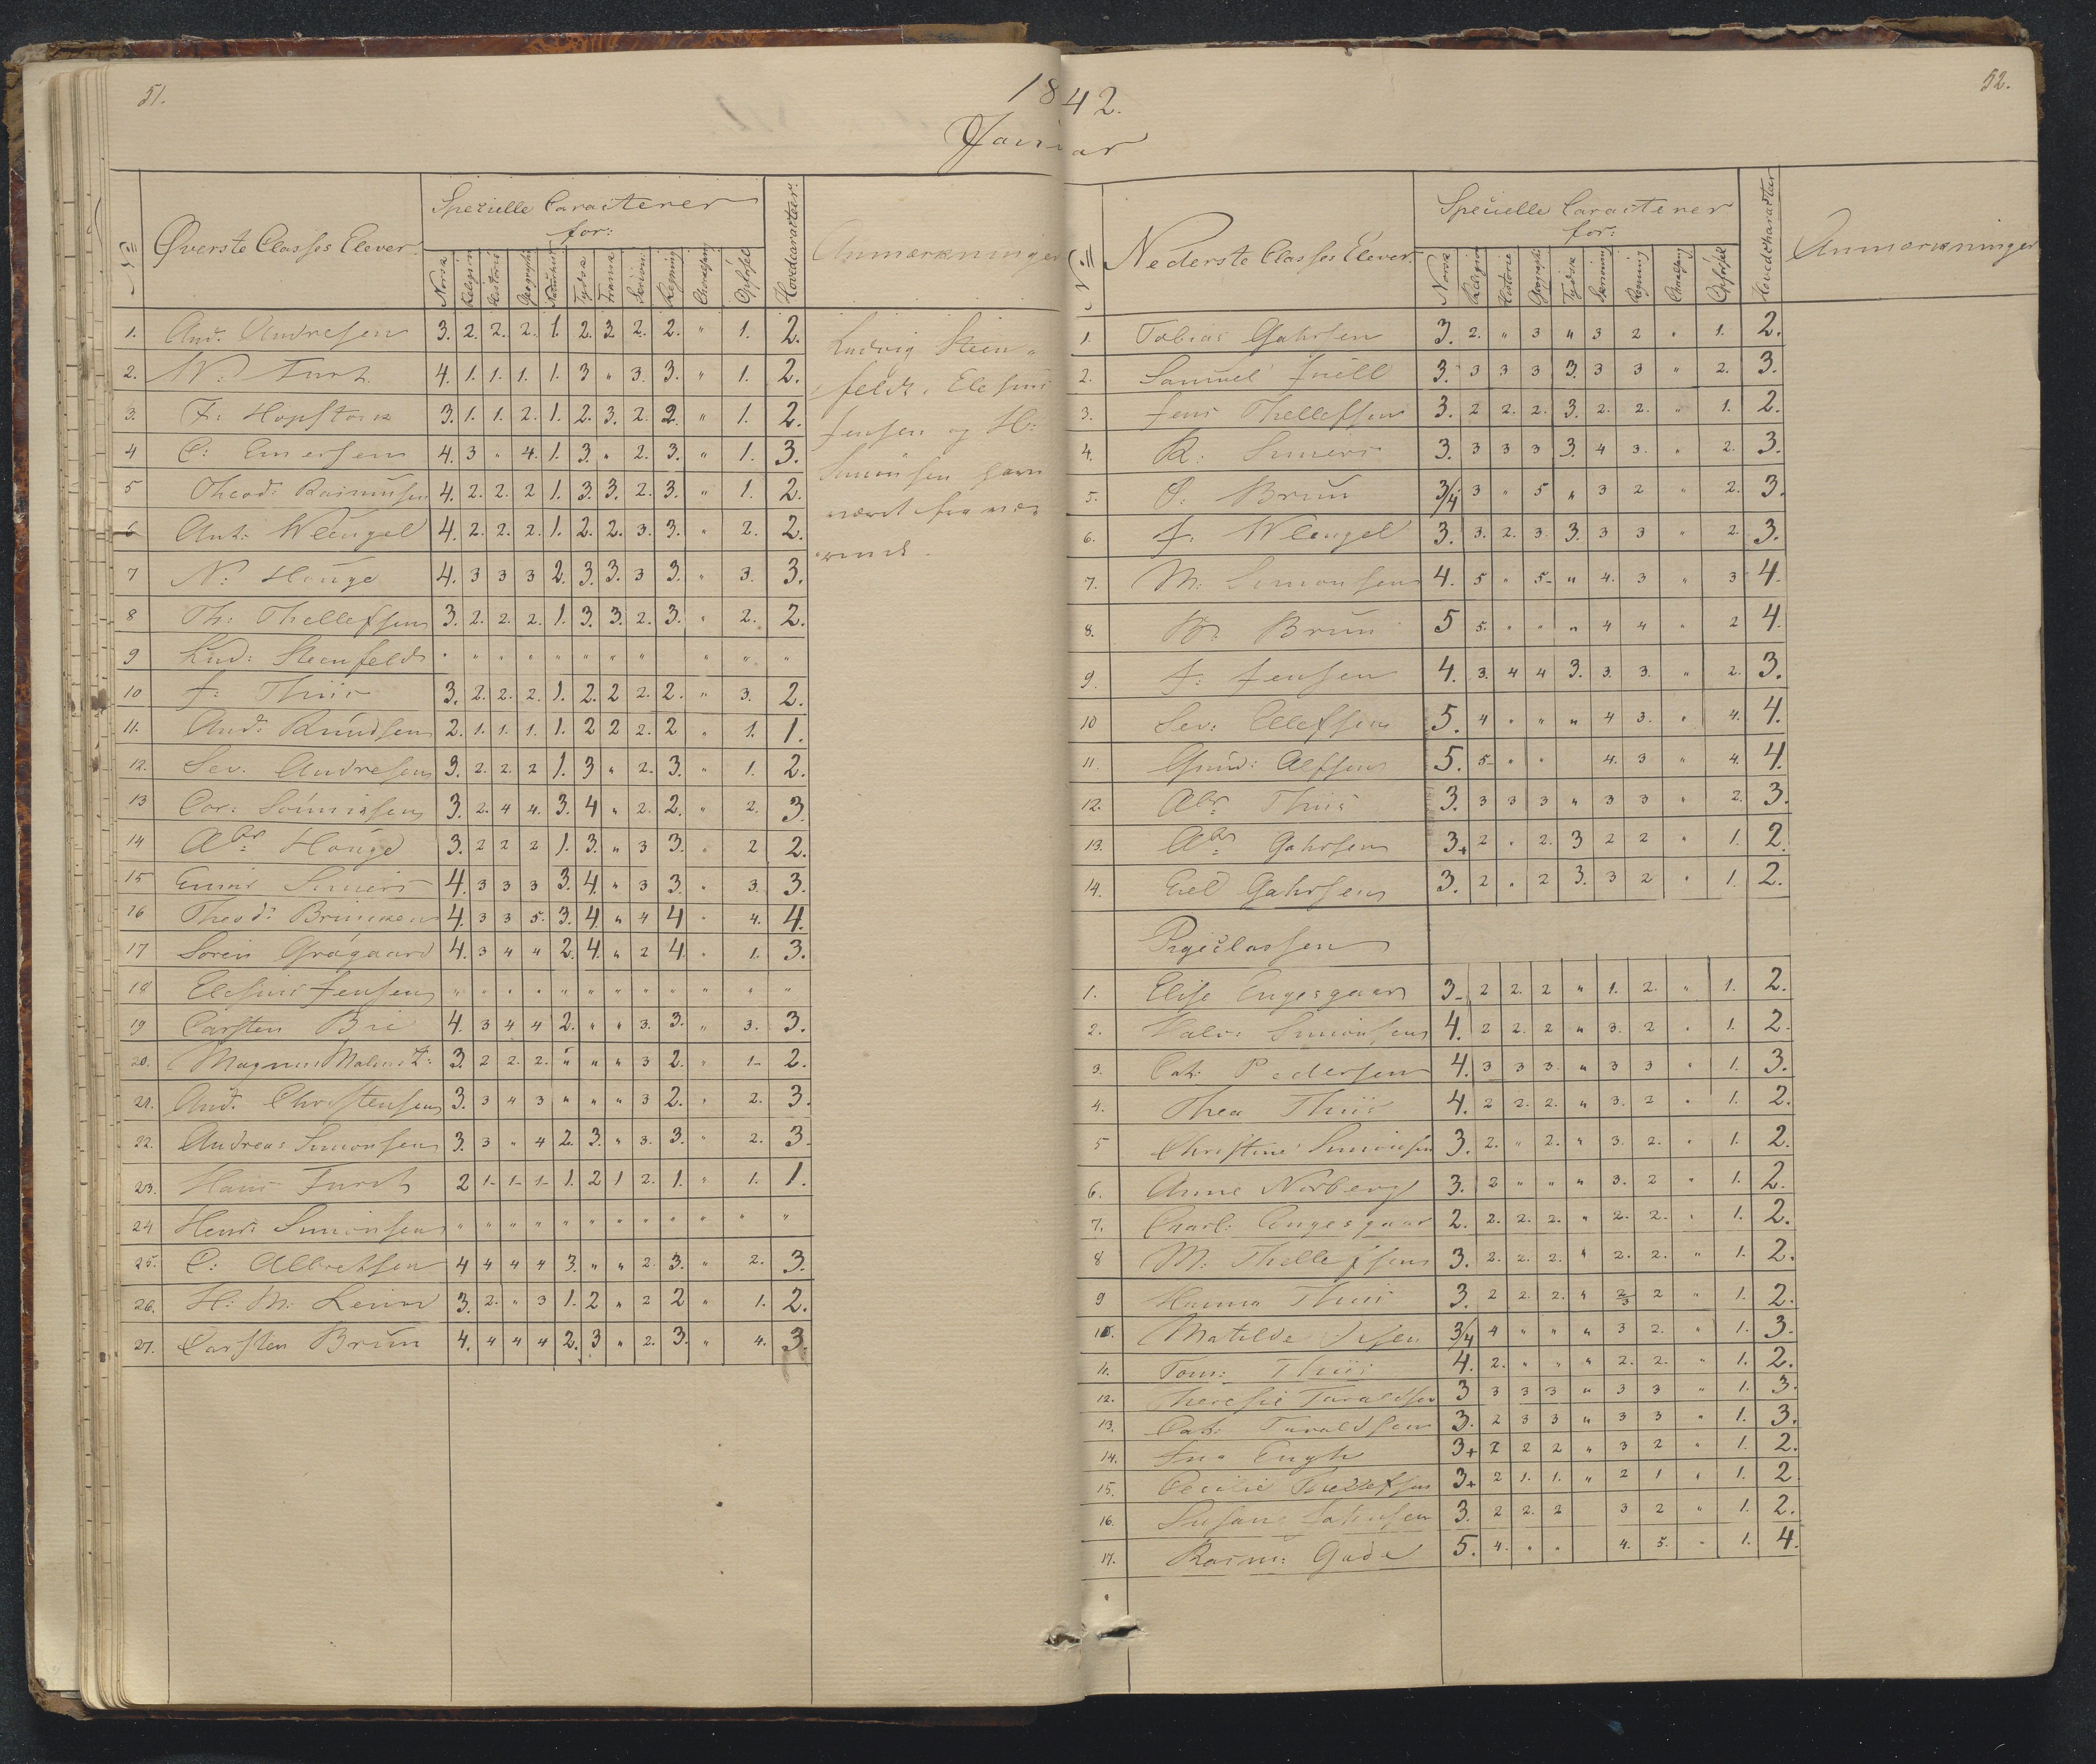 51.
1842.
Januar
52.
No
Øverste Classes Elever.
Specielle Caracterer
for:
Norsk Religion Historie Geographi Naturhist Tydsk Fransk Skrivn: Regning Choralsang Opførsel
Hovedcaracteer.
Anmærkninger
1. And. Andresen 3. 2. 2. 2. 1. 2. 3 2. 2. " 1. 2.
2. N: Furst 4. 1. 1. 1. 1. 3 " 3. 3. " 1. 2.
3. F: Hopstock 3. 1. 1. 2. 1. 2. 3. 2. 2. " 1. 2.
4 C: Enersen 4. 3 " 4. 1. 3. " 2. 3. " 1. 3.
5 Theod: Rasmusen 4. 2. 2. 2 1. 3. 3. 2. 3. " 1. 2.
6 Ant: Wleugel 4. 2. 2. 2. 1. 2. 2. 3. 3. " 2. 2.
7 N: Houge 4. 3 3 3 2. 3. 3. 3 3. " 3. 3.
8 Th: Thellefsen 3. 2. 2. 2. 1. 3. 3. 2. 3. " 2. 2.
9 Lud: Steenfeldt " " " " " " " " " " "
10 J: Thiis 3. 2. 2. 2. 1. 2. 2 2. 2. " 3. 2.
11. And: Knudsen 2. 1. 1. 1. 1. 2 2 2. 2 " 1. 1.
12. Sev. Andresen 3. 2. 2. 2 1. 3 " 2. 3. " 1. 2.
13 Cor: Sønnissen 3. 2. 4 4. 3. 4 " 2. 2. " 2. 3.
14 Abr Houge 3. 2 2 2 1. 3. " 3 3. " 2 2.
15 Ennis Siners 4. 3 3 3 3. 4. " 3 3. " 3. 3.
16 Theod: Brincken 4. 3 3 5. 3. 4. " 4 4 " 4. 4.
17 Søren Grågaard 4. 3 4 4 2. 4. " 2 4. " 1. 3.
18 Elesius Jensen " " " " " " " " " " " "
19 Carsten Bie 4. 3 4 4 2. " " 3. 3. " 3. 3.
20. Magnus Malm 3. 2 2. 2. " " " 3 2. " 1- 2.
21. And. Christensen 3. 3 4 3 " " " 3 2. " 2. 3.
22. Andreas Simonsen 3. 3 " 4 2. 3. " 3. 3. " 2. 3.
23. Hans Furst 2 1- 1- 1- 1. 2 1 2. 1. " 1. 1.
24 Henr: Simonsen " " " " " " " " " " " "
25. C: Albretsen 4 4 4 4 3. " " 2. 3. " 2. 3.
26. H: M: Leine 3. 2. " 3 1. 2 " 2 2 " 1. 2.
27. Carsten Brun 4. 4 4 4 2. 3 " 2. 3. " 4. 3.
Ludvig Steen-
feldt, Elesius
Jensen og H:
Simonsen have
været fravæ-
rende.
No
Nederste Classes Elever
Specielle Caracterer
for:
Norsk Religion Historie Geographi Tydsk Skrivning Regning Choralsang Opførsel
Hovedcharacteer
Anmærkninger
1. Tobias Gahrsen 3. 2. " 3 " 3 2 " 1. 2.
2. Samuel Juell 3. 3 3 3 3. 3 3 " 2. 3.
3. Jens Thellefsen 3. 2 2. 2. 3. 2. 2. " 1. 2.
4. R: Siners 3. 3 3 3 3. 4 3. " 2. 3.
5. O: Brun 3/4 3 " 5 " 3 2 " 2. 3.
6. J: Wleugel 3. 3. 2. 3. 3. 3 3 " 2. 3.
7. M: Simonsen 4. 5 " 5- " 4. 3 " 3 4.
8. Brun 5 5. " " " 4 4 " 2 4.
9. J: Jensen 4. 3. 4 4 3. 3. 3. " 2. 3.
10 Sev: Ellefsen 5. 4 " " " 4 3. " 4. 4.
11. Gund: Alfsen 5. 5- " " 4. 3 " 4. 4.
12. Abr Thiis 3. 3 3 3 " 3 3 " 2. 3.
13. Abr Gahrsen 3+ 2 " 2. 3 2 2 " 1. 2.
14. Gahrsen 3. 2 " 2 3. 3 2 " 1. 2.
Pigeclassen
1. Elise Engesgaar 3- 2 2. 2 " 1. 2. " 1. 2.
2. Halv: Simonsen 4. 2 2. 2 " 3. 2 " 1. 2.
3. Cat: Pedersen 4. 3 3 3. " 3 3 " 1. 3.
4. Thea Thiis 4. 2 2. 2. " 3. 2 " 1. 2.
5 Christine Simonsen 3. 2. " 2. " 3. 2. " 1. 2.
6. Anne Norberg 3. 2 " " " 3. 2 " 1. 2.
7. Charl: Engesgaar 2. 2. 2. 2. " 2. 2. " 1. 2.
8 M: Thellefsen 3. 2. 2. 2. " 2. 2. " 1. 2.
9 Hanna Thiis 3. 2 2. 2. " 2/3 2 " 1. 2.
10. Matilde 3/4 4 " " " 3 2. " 1. 3.
11. Tom: Thiis 4. 2. " " " 2. 2. " 1. 2.
12. Theresie Taraldsen 3 3 3 3 " 3 3 " 1. 3.
13. Cat: Taraldsen 3. 2 3 3 " 3 3 " 1. 3.
14. Ina Engh 3+ 2 2 2 " 3 2 " 1. 2.
15. Cecilie Thellefsen 3+ 2 1. 1. " 2 1 " 1. 2.
16. Susane 3. 2 2. 2 3 2 " 1. 2.
17. Rasm: Gude 5. 4. " " 4. 5. " 1. 4.